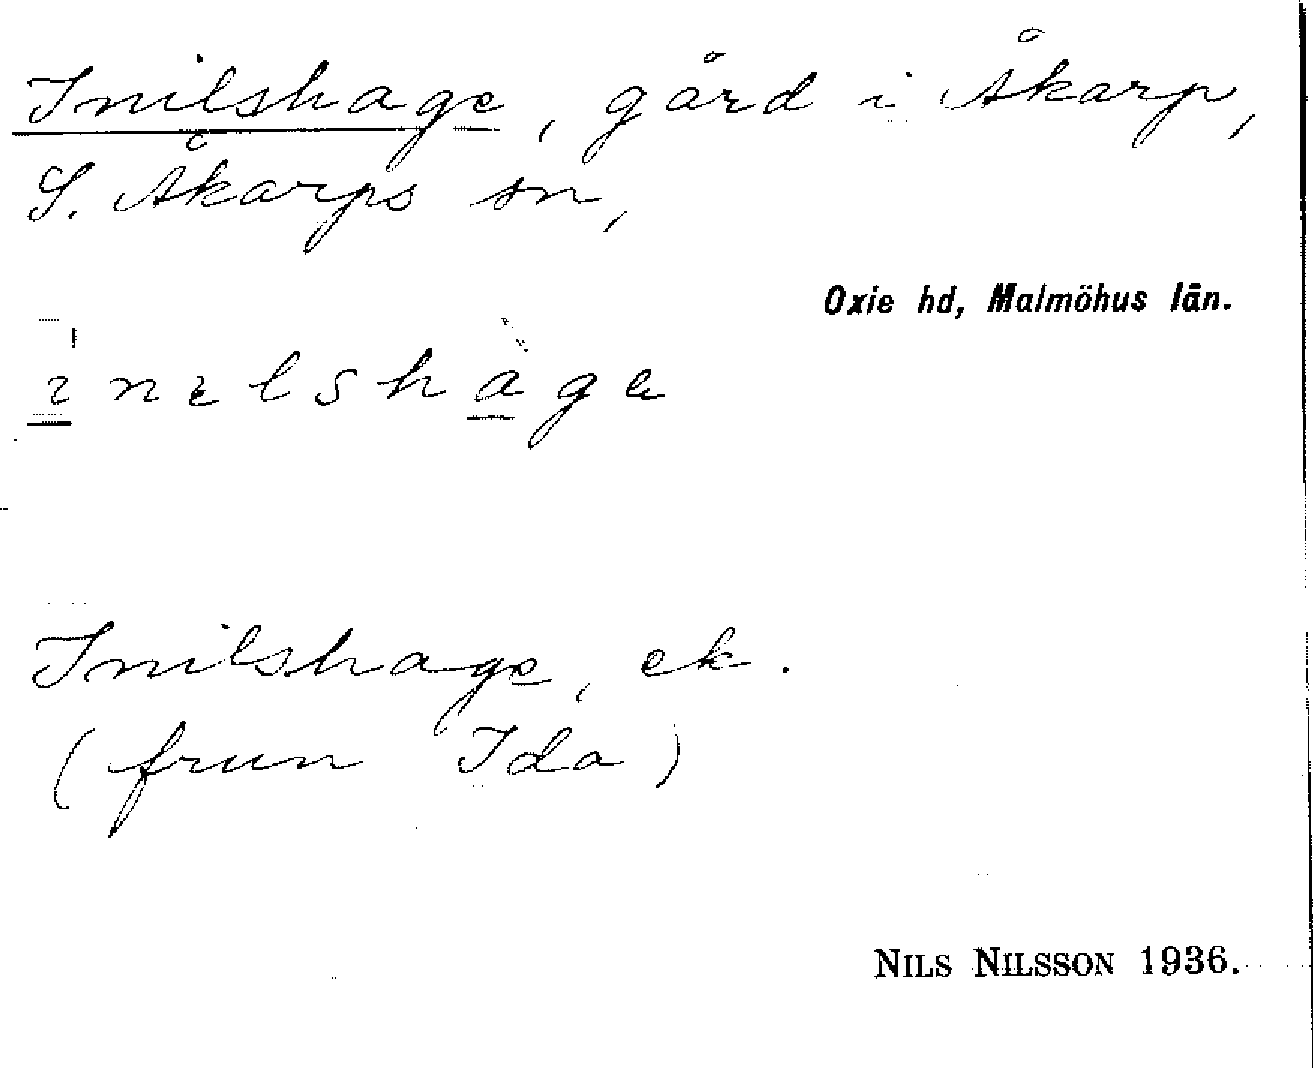 Inilshage, gård i Åkarp,
S. Åkarps sn,
Oxie hd, Malmöhus län.
inelshàge
Inilshage, ek.
(frun Ida)
NILS NILSSON 1936.